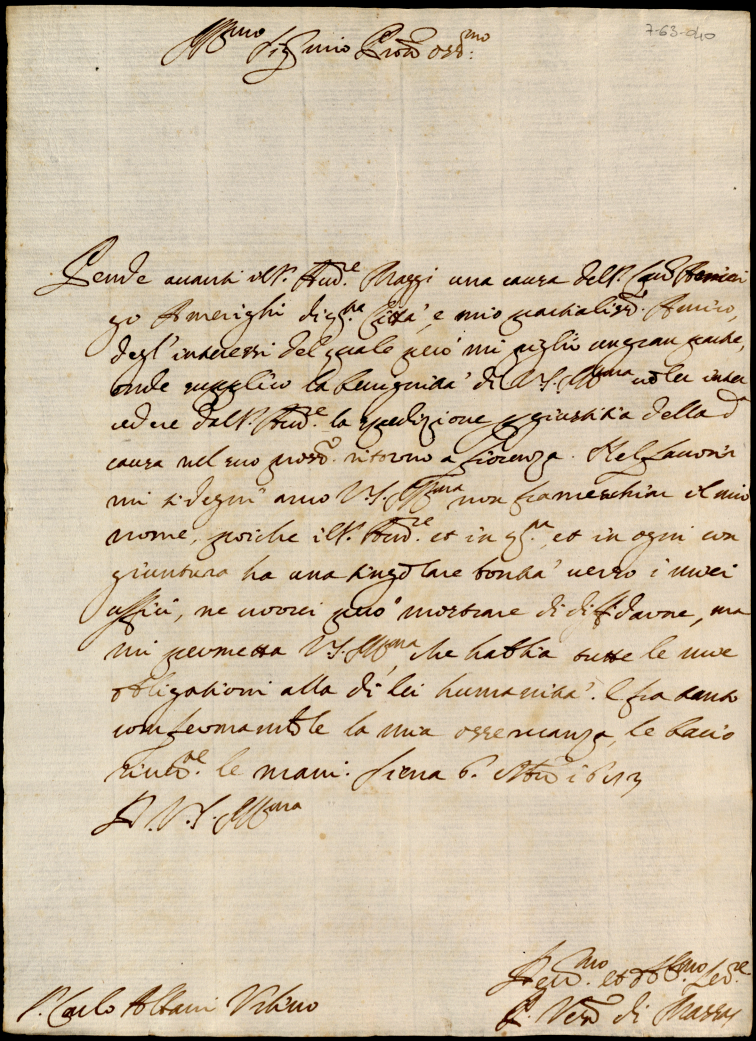 7-63-040
Ill.mo Sig.r mio P.ron oss.mo
Pende auanti il S.r Aud.re Maggi una causa del S.r Cau.r Ameri
go Amerighi di q.sta Città, e mio partialiss.o Amico,
degl'interessi del quale però mi piglio un gran parte,
onde supplico la benignità di V.S. Ill.ma uoler inter
cedere dal S.r Aud.re la spedizione p giustitia della d.a
causa nel suo pross.o ritorno a Fiorenza. Nel fauorir
mi si degni anco V.S. Ill.ma non frameschiar il mio
nome, poiche il S.r Aud.re et in q.sta, et in ogni con
giuntura ha una singolare bontà uerso i miei
uffici, ne uorrei però mostrare di diffidarne, ma
mi permetta V.S. Ill.ma, che habbia tutte le mie
obligationi alla di lei humanità. E fra tanto
confermandole la mia osseruanza, le bacio
riuer.te le mani. Siena 6. Nou.e
D. V.S. Ill.ma
et Obl.mo Ser.re
S. Carlo Albani Urbino
Vesc.o di Massa